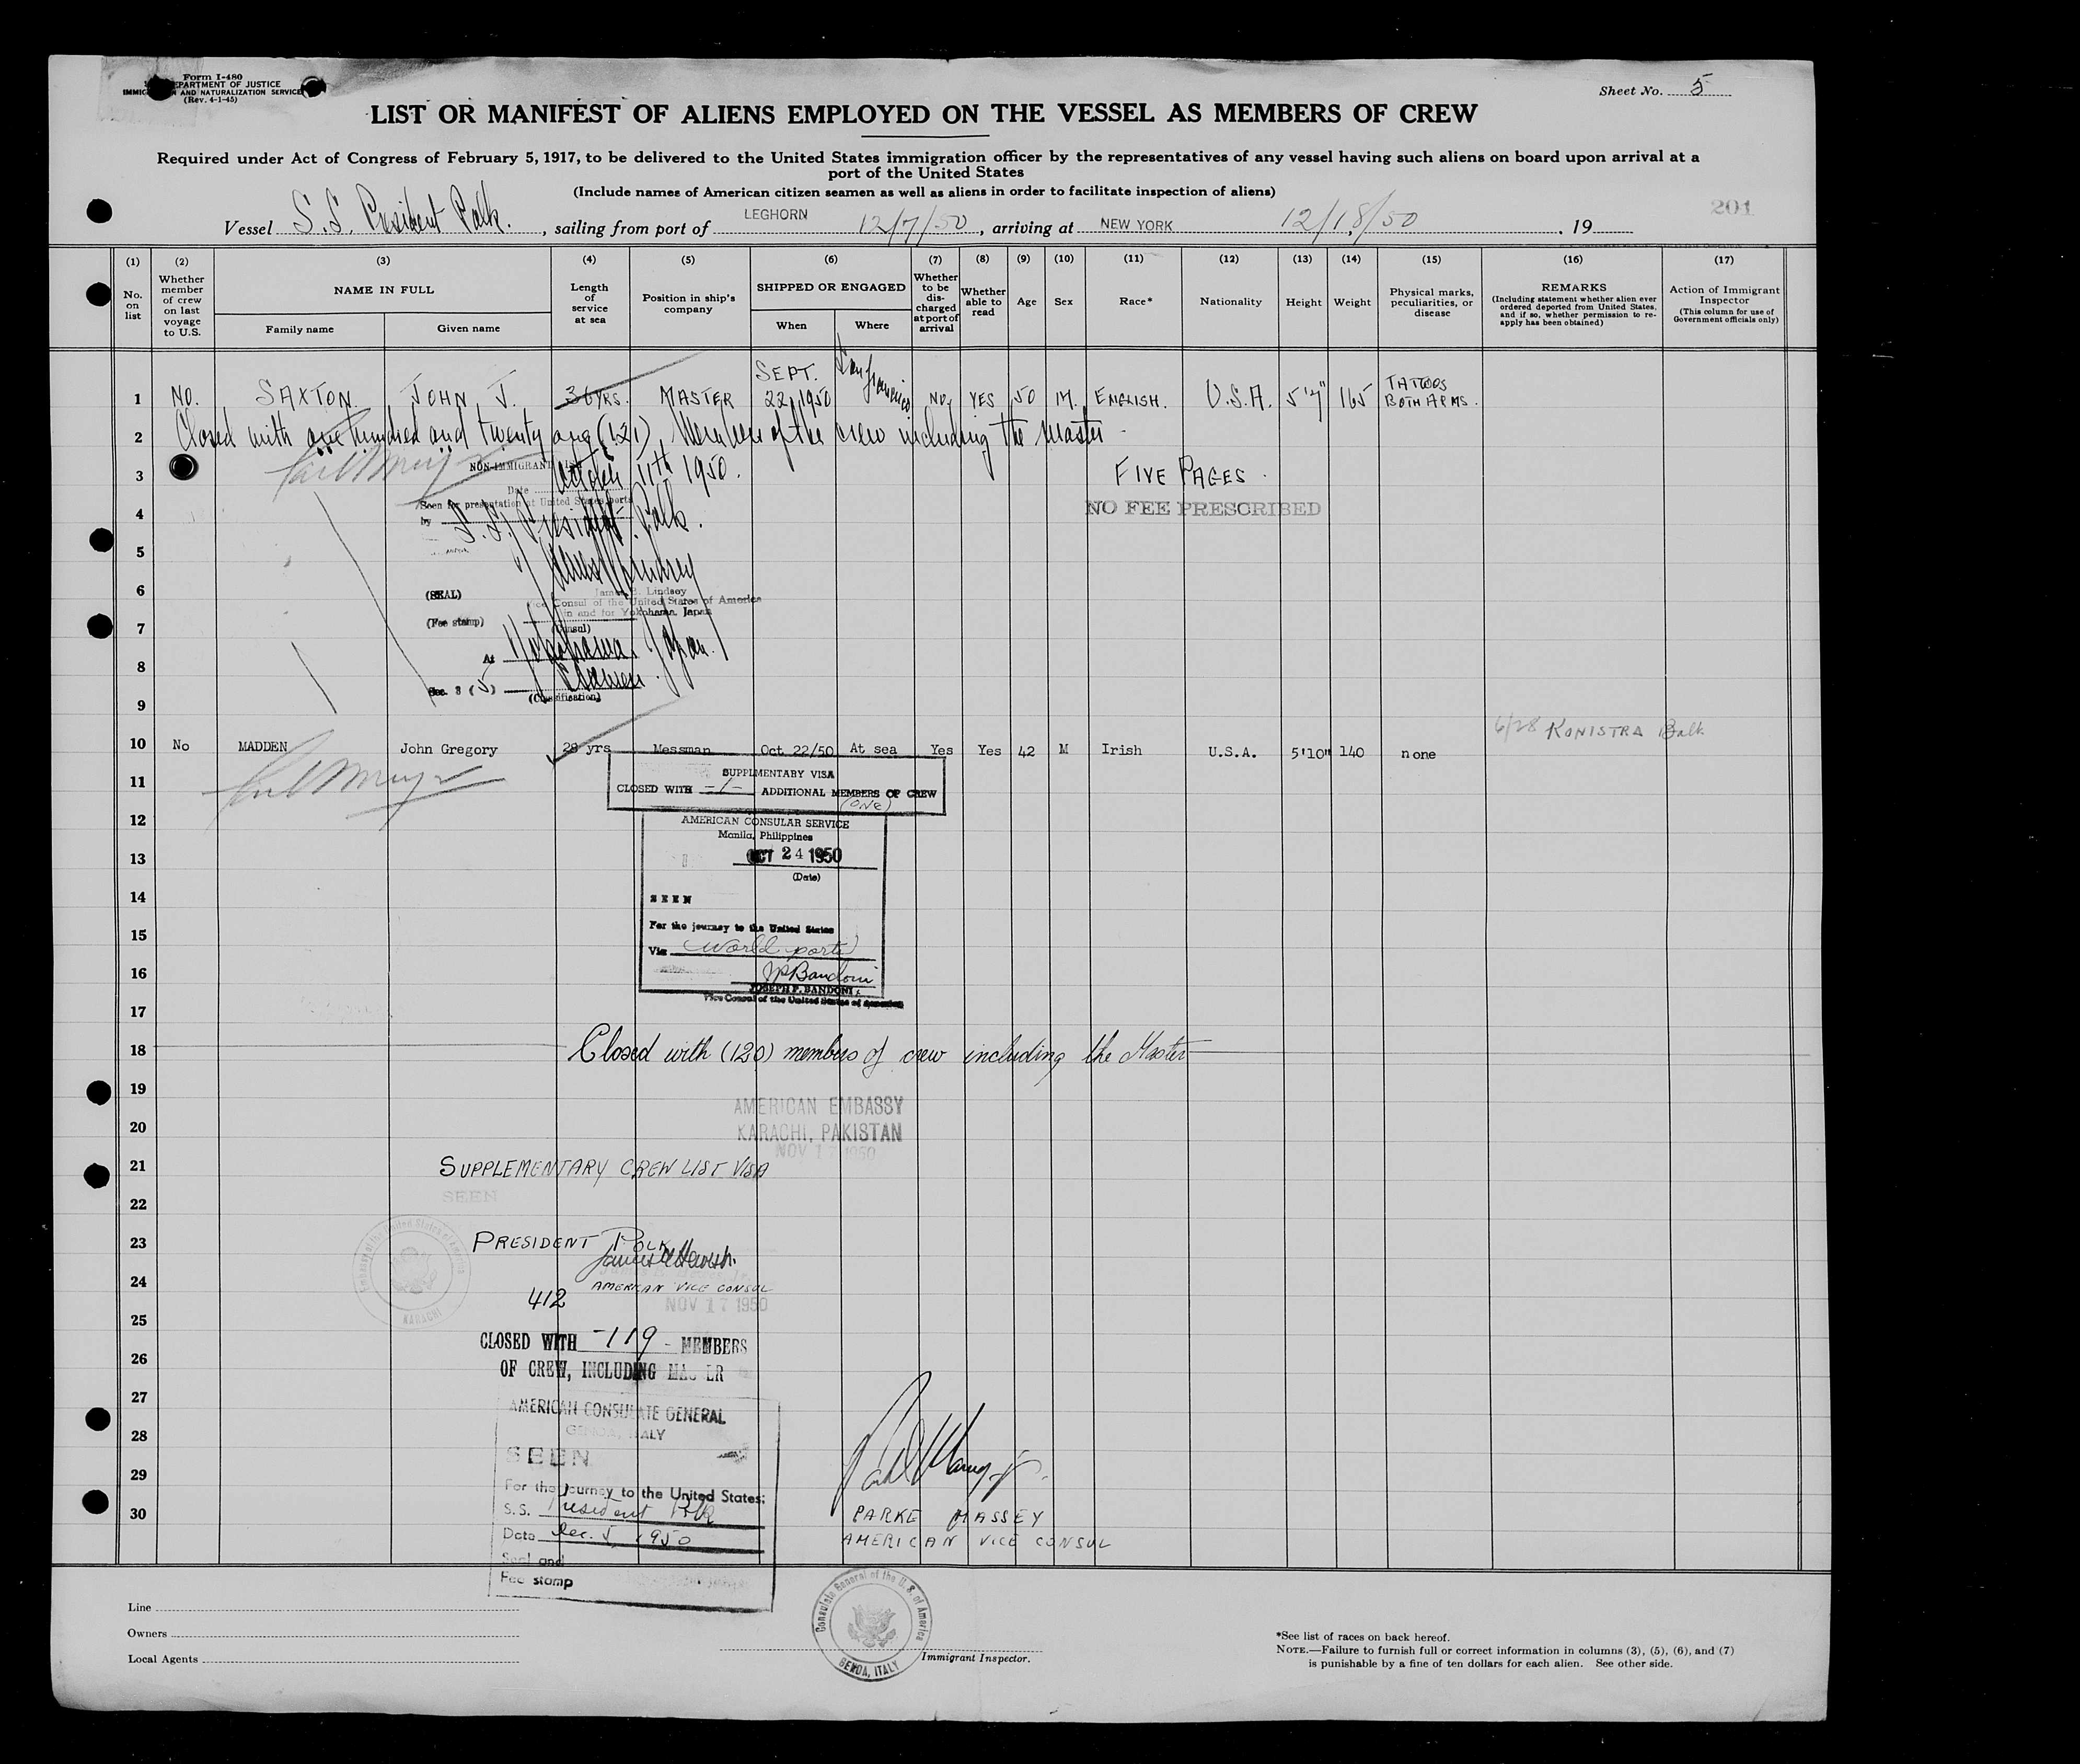 Form I-480
DEPARTMENT OF JUSTICE
IMMIGRATION AND NATURALIZATION SERVICE
(Rev. 4-1-45)
Sheet No. 5
LIST OR MANIFEST OF ALIENS EMPLOYED ON THE VESSEL AS MEMBERS OF CREW
Required under Act of Congress of February 5, 1917, to be delivered to the United States immigration officer by the representatives of any vessel having such aliens on board upon arrival at a
port of the United States
(Include names of American citizen seamen as well as aliens in order to facilitate inspection of aliens)
201
Vessel S.S. President Polk. , sailing from port of LEGHORN 12/7/50 , arriving at NEW YORK 12/18/50 . 19
(1) (2) (3) (4) (5) (6) (7) (8) (9) (10) (11) (12) (13) (14) (15) (16) (17)
No. on list
Whether member of crew on last voyage to U.S.
NAME IN FULL
Family name
Given name
Length of service at sea
Position in ship's company
SHIPPED OR ENGAGED
When
Where
Whether to be discharged at port of arrival
Whether able to read
Age
Sex
Race*
Nationality
Height
Weight
Physical marks, peculiarities, or disease
REMARKS
(Including statement whether alien ever ordered deported from United States, and if so, whether permission to reapply has been obtained)
Action of Immigrant Inspector
(This column for use of Government officials only)
1 NO. SAXTON JOHN J. 36 YRS. MASTER SEPT. 22, 1950 San Francisco NO, YES 50 M. ENGLISH. U.S.A. 5'7" 165 TATTOOS BOTH ARMS.
2 Closed with one hundred and twenty one (121), Members of the crew including the Master
3 NON-IMMIGRANT
Date October 11th 1950.
FIVE PAGES.
4 Seen for presentation at United States ports
by S.S. President Polk.
NO FEE PRESCRIBED
5
6 (SEAL)
James B. Lindsey
Vice Consul of the United States of America
in and for Yokohama, Japan
7 (Fee stamp) (Consul)
At Yokohama, Japan.
8
Sec. 3 (5) Seamen.
(Classification)
9
6/28 KONISTRA Balt.
10 No MADDEN John Gregory 28 yrs Messman Oct 22/50 At sea Yes Yes 42 M Irish U.S.A. 5'10" 140 none
11 SUPPLMENTARY VISA
CLOSED WITH -1- ADDITIONAL MEMBERS OF CREW
(ONE)
12 AMERICAN CONSULAR SERVICE
Manila, Philippines
13 OCT 24 1950
(Date)
14 SEEN
15 For the journey to the United States
Via World ports
16 JP Bandoni
JOSEPH P. BANDONI
Vice Consul of the United States of America
17
18 Closed with (120) members of crew including the Master
19
AMERICAN EMBASSY
20 KARACHI, PAKISTAN
NOV 17 1950
21 SUPPLEMENTARY CREW LIST VISA
22 SEEN
Embassy of the United States of America
KARACHI
23 PRESIDENT POLK
24 AMERICAN VICE CONSUL
412
NOV 17 1950
25
CLOSED WITH -119- MEMBERS
26 OF CREW, INCLUDING MASTER
27
AMERICAN CONSULATE GENERAL
28 GENOA, ITALY
SEEN
29 For the journey to the United States:
S.S. President Polk
30 PARKE MASSEY
Date Dec. 5, 1950
AMERICAN VICE CONSUL
Seal and
Fee stamp
Consulate General of the U. S. of America
GENOA, ITALY
Line
Owners
Local Agents
Immigrant Inspector.
*See list of races on back hereof.
NOTE.—Failure to furnish full or correct information in columns (3), (5), (6), and (7)
is punishable by a fine of ten dollars for each alien. See other side.